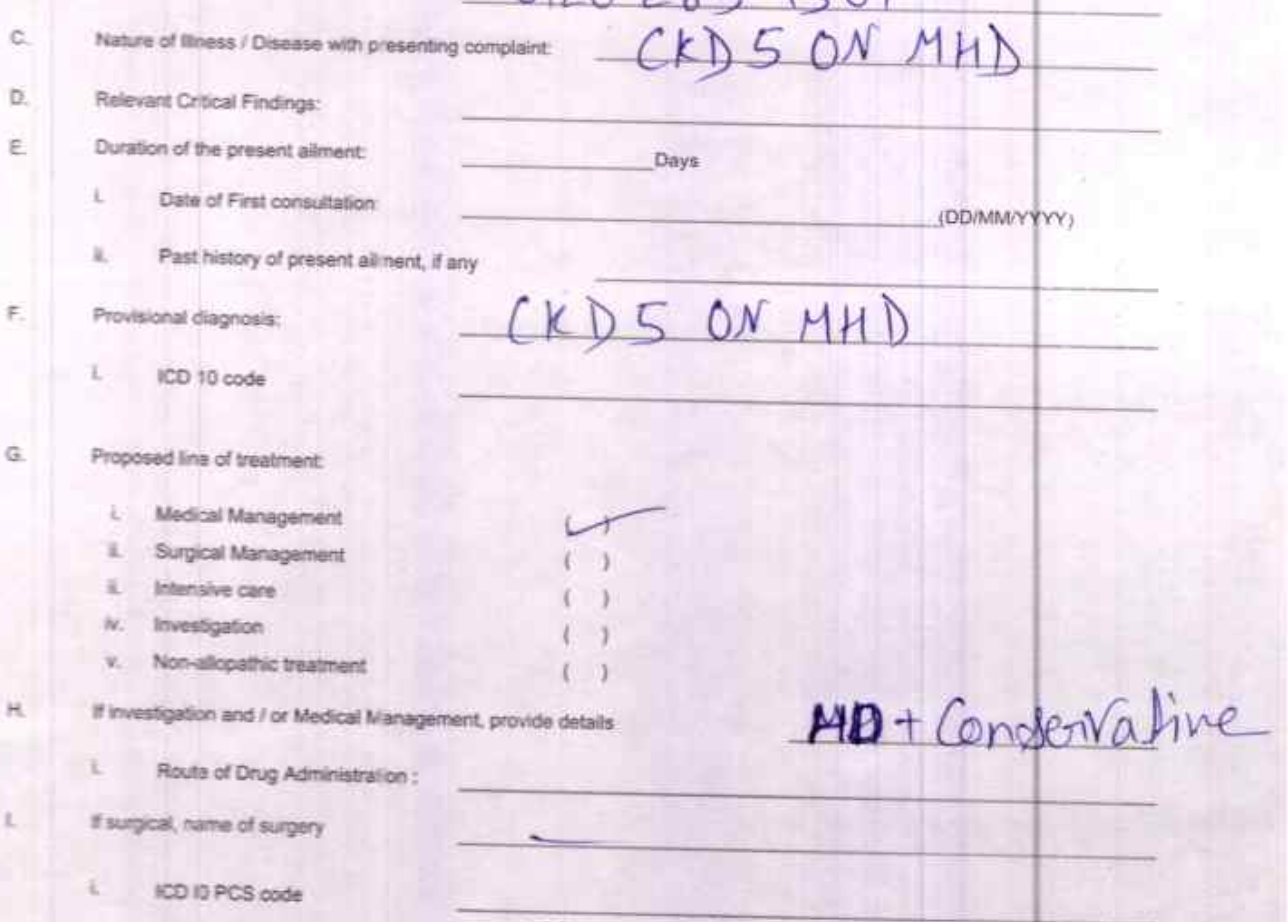 C. Nature of Illness / Disease with presenting complaint: CKD 5 ON MHD
D. Relevant Critical Findings:
E. Duration of the present ailment: Days
i. Date of First consultation: (DD/MM/YYYY)
ii. Past history of present ailment, if any
F. Provisional diagnosis: CKD 5 ON MHD
i. ICD 10 code
G. Proposed line of treatment:
i. Medical Management (✓)
ii. Surgical Management ( )
ii. Intensive care ( )
iv. Investigation ( )
v. Non-allopathic treatment ( )
H. If investigation and / or Medical Management, provide details HD + Conservative
i. Route of Drug Administration :
I. If surgical, name of surgery —
i. ICD I0 PCS code